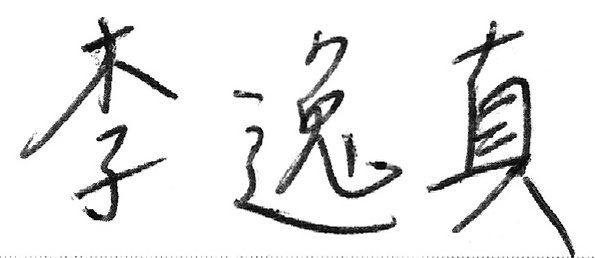 李逸真